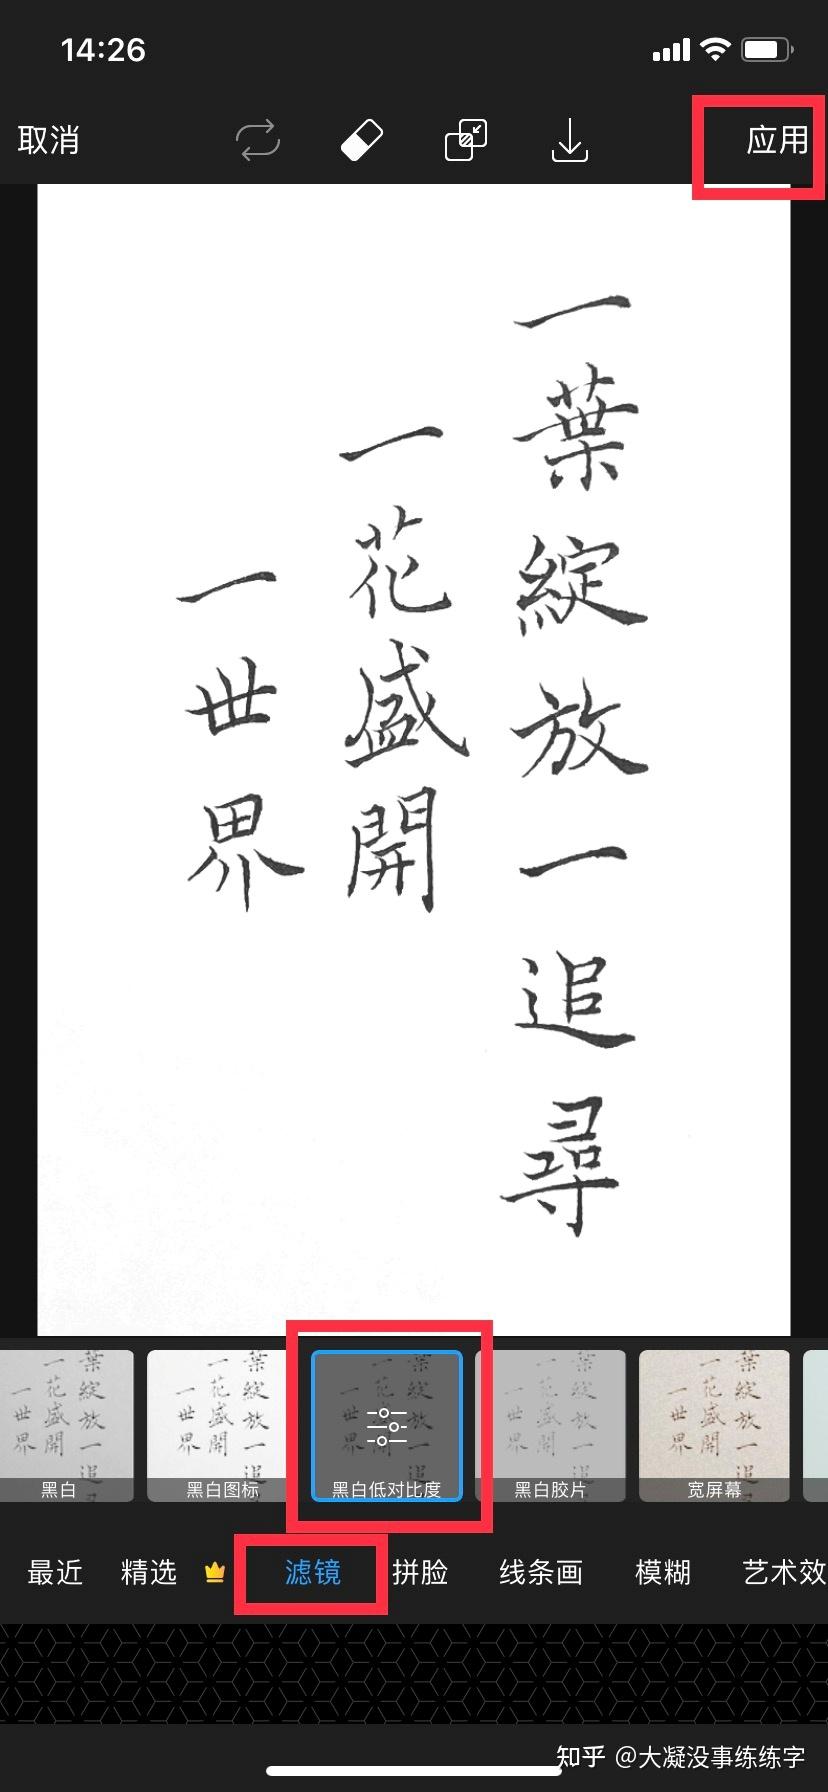 14:26
取消
应用
一葉綻放一追尋
一花盛開
一世界
黑白
黑白图标
黑白低对比度
黑白胶片
宽屏幕
最近
精选
滤镜
拼脸
线条画
模糊
艺术效
知乎 @大凝没事练练字